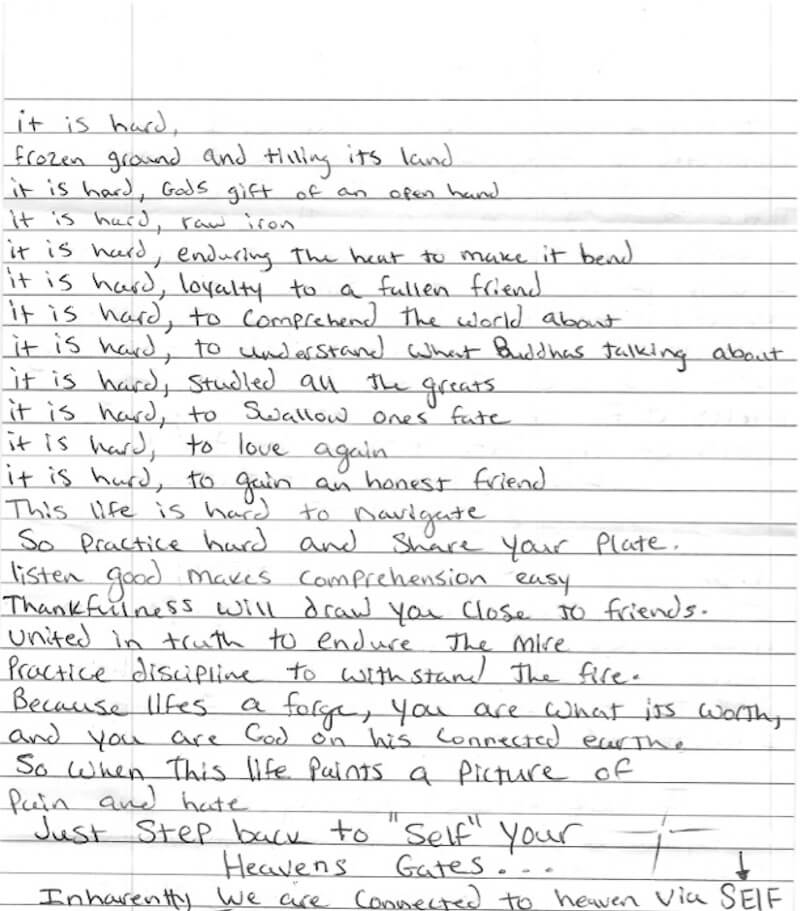 it is hard,
frozen ground and tilling its land
it is hard, Gods gift of an open hand
it is hard, raw iron
it is hard, enduring The heat to make it bend
it is hard, loyalty to a fallen friend
it is hard, to comprehend the world about
it is hard, to understand what Buddhas talking about
it is hard, studied all the greats
it is hard, to swallow ones fate
it is hard, to love again
it is hard, to gain an honest friend
This life is hard to navigate
So Practice hard and share your Plate.
listen good makes comprehension easy
Thankfulness will draw you close to friends.
United in truth to endure The mire
Practice discipline to withstand The fire.
Because lifes a forge, you are what its worth,
and you are God on his connected earth.
So when This life Paints a Picture of
Pain and hate
Just Step back to "Self" your
Heavens Gates...
Inharently We are connected to heaven via SElF